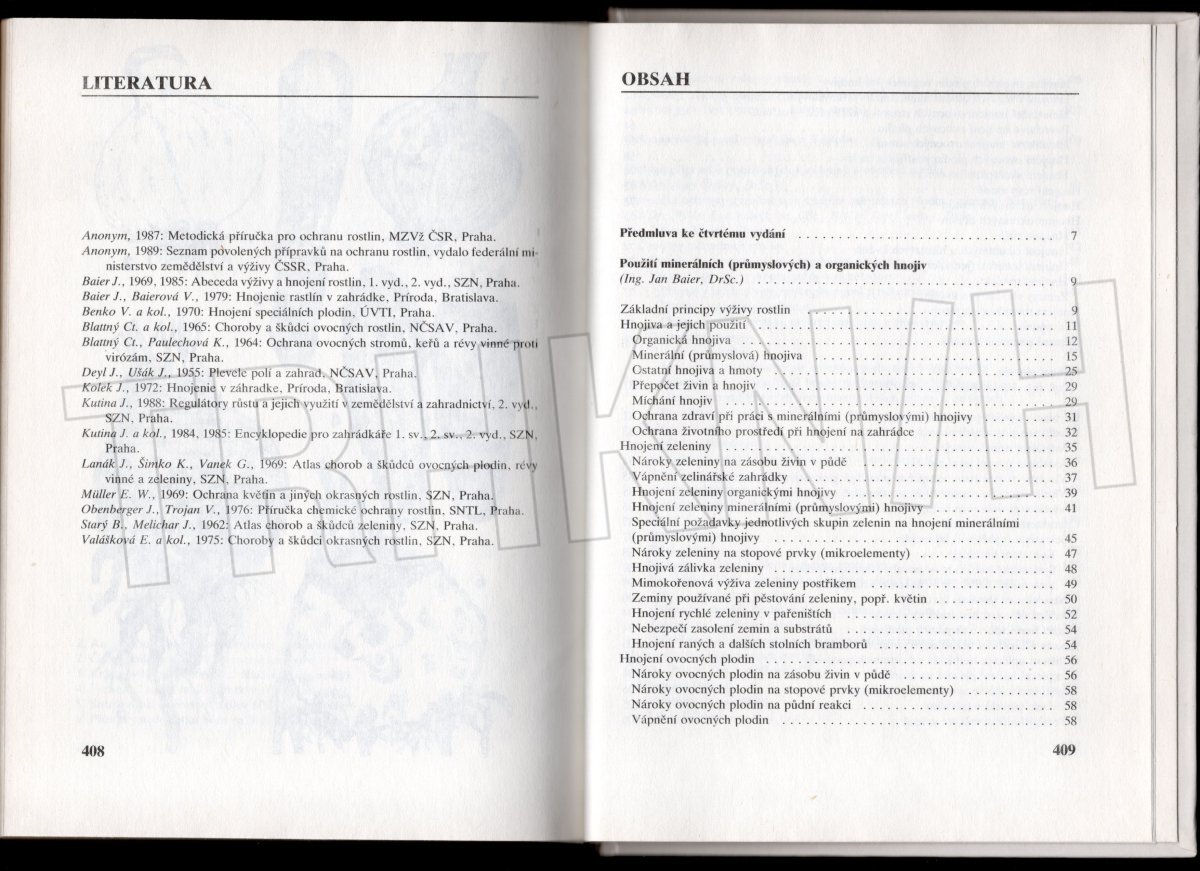 LITERATURA
Anonym, 1987: Metodická příručka pro ochranu rostlin, MZVž ČSR, Praha.
Anonym, 1989: Seznam povolených přípravků na ochranu rostlin, vydalo federální mi-
nisterstvo zemědělství a výživy ČSSR, Praha.
Baier J., 1969, 1985: Abeceda výživy a hnojení rostlin, 1. vyd., 2. vyd., SZN, Praha.
Baier J., Baierová V., 1979: Hnojenie rastlín v zahrádke, Príroda, Bratislava.
Benko V. a kol., 1970: Hnojení speciálních plodin, ÚVTI, Praha.
Blattný Ct. a kol., 1965: Choroby a škůdci ovocných rostlin, NČSAV, Praha.
Blattný Ct., Paulechová K., 1964: Ochrana ovocných stromů, keřů a révy vinné proti
virózám, SZN, Praha.
Deyl J., Ušák J., 1955: Plevele polí a zahrad, NČSAV, Praha.
Kolek J., 1972: Hnojenie v záhradke, Príroda, Bratislava.
Kutina J., 1988: Regulátory růstu a jejich využití v zemědělství a zahradnictví, 2. vyd.,
SZN, Praha.
Kutina J. a kol., 1984, 1985: Encyklopedie pro zahrádkáře 1. sv., 2. sv., 2. vyd., SZN,
Praha.
Lanák J., Šimko K., Vanek G., 1969: Atlas chorob a škůdců ovocných plodin, révy
vinné a zeleniny, SZN, Praha.
Müller E. W., 1969: Ochrana květin a jiných okrasných rostlin, SZN, Praha.
Obenberger J., Trojan V., 1976: Příručka chemické ochrany rostlin, SNTL, Praha.
Starý B., Melichar J., 1962: Atlas chorob a škůdců zeleniny, SZN, Praha.
Valášková E. a kol., 1975: Choroby a škůdci okrasných rostlin, SZN, Praha.
408
OBSAH
Předmluva ke čtvrtému vydání . . . . . . . . . . 7
Použití minerálních (průmyslových) a organických hnojiv
(Ing. Jan Baier, DrSc.) . . . . . . . . . . 9
Základní principy výživy rostlin . . . . . . . . . . 9
Hnojiva a jejich použití . . . . . . . . . . 11
Organická hnojiva . . . . . . . . . . 12
Minerální (průmyslová) hnojiva . . . . . . . . . . 15
Ostatní hnojiva a hmoty . . . . . . . . . . 25
Přepočet živin a hnojiv . . . . . . . . . . 29
Míchání hnojiv . . . . . . . . . . 29
Ochrana zdraví při práci s minerálními (průmyslovými) hnojivy . . . . . . . . . . 31
Ochrana životního prostředí při hnojení na zahrádce . . . . . . . . . . 32
Hnojení zeleniny . . . . . . . . . . 35
Nároky zeleniny na zásobu živin v půdě . . . . . . . . . . 36
Vápnění zelinářské zahrádky . . . . . . . . . . 37
Hnojení zeleniny organickými hnojivy . . . . . . . . . . 39
Hnojení zeleniny minerálními (průmyslovými) hnojivy . . . . . . . . . . 41
Speciální požadavky jednotlivých skupin zelenin na hnojení minerálními
(průmyslovými) hnojivy . . . . . . . . . . 45
Nároky zeleniny na stopové prvky (mikroelementy) . . . . . . . . . . 47
Hnojivá zálivka zeleniny . . . . . . . . . . 48
Mimokořenová výživa zeleniny postřikem . . . . . . . . . . 49
Zeminy používané při pěstování zeleniny, popř. květin . . . . . . . . . . 50
Hnojení rychlé zeleniny v pařeništích . . . . . . . . . . 52
Nebezpečí zasolení zemin a substrátů . . . . . . . . . . 54
Hnojení raných a dalších stolních bramborů . . . . . . . . . . 54
Hnojení ovocných plodin . . . . . . . . . . 56
Nároky ovocných plodin na zásobu živin v půdě . . . . . . . . . . 56
Nároky ovocných plodin na stopové prvky (mikroelementy) . . . . . . . . . . 58
Nároky ovocných plodin na půdní reakci . . . . . . . . . . 58
Vápnění ovocných plodin . . . . . . . . . . 58
409
TRHKNIH